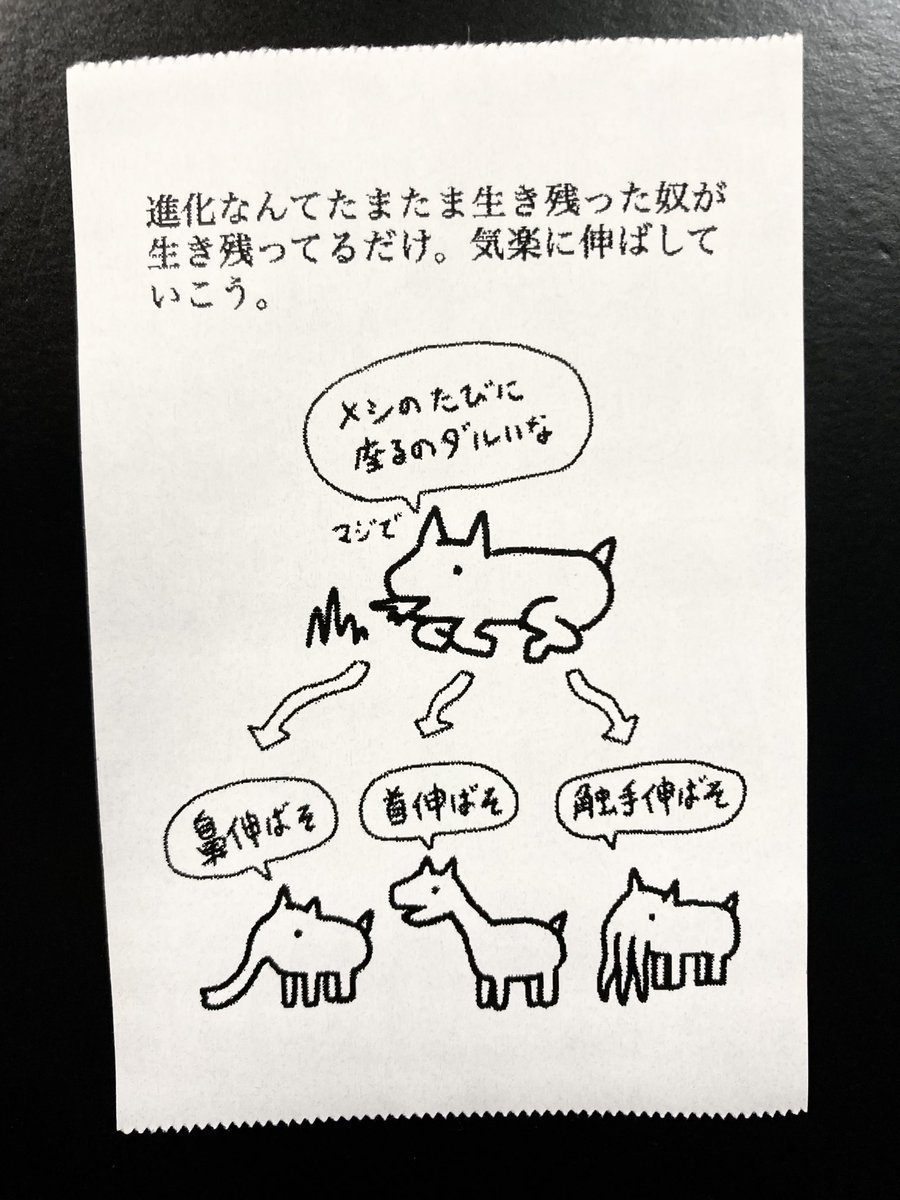 進化なんてたまたま生き残った奴が
生き残ってるだけ。気楽に伸ばして
いこう。
メシのたびに
座るのダルいな
マジで
鼻伸ばそ
首伸ばそ
触手伸ばそ